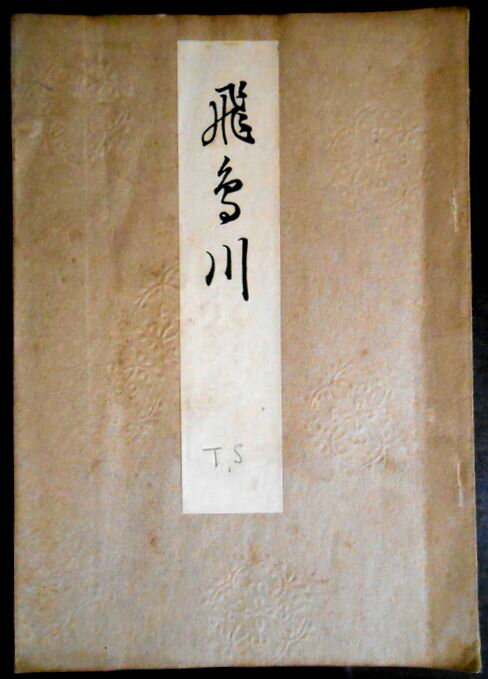 飛鳥川
T.S